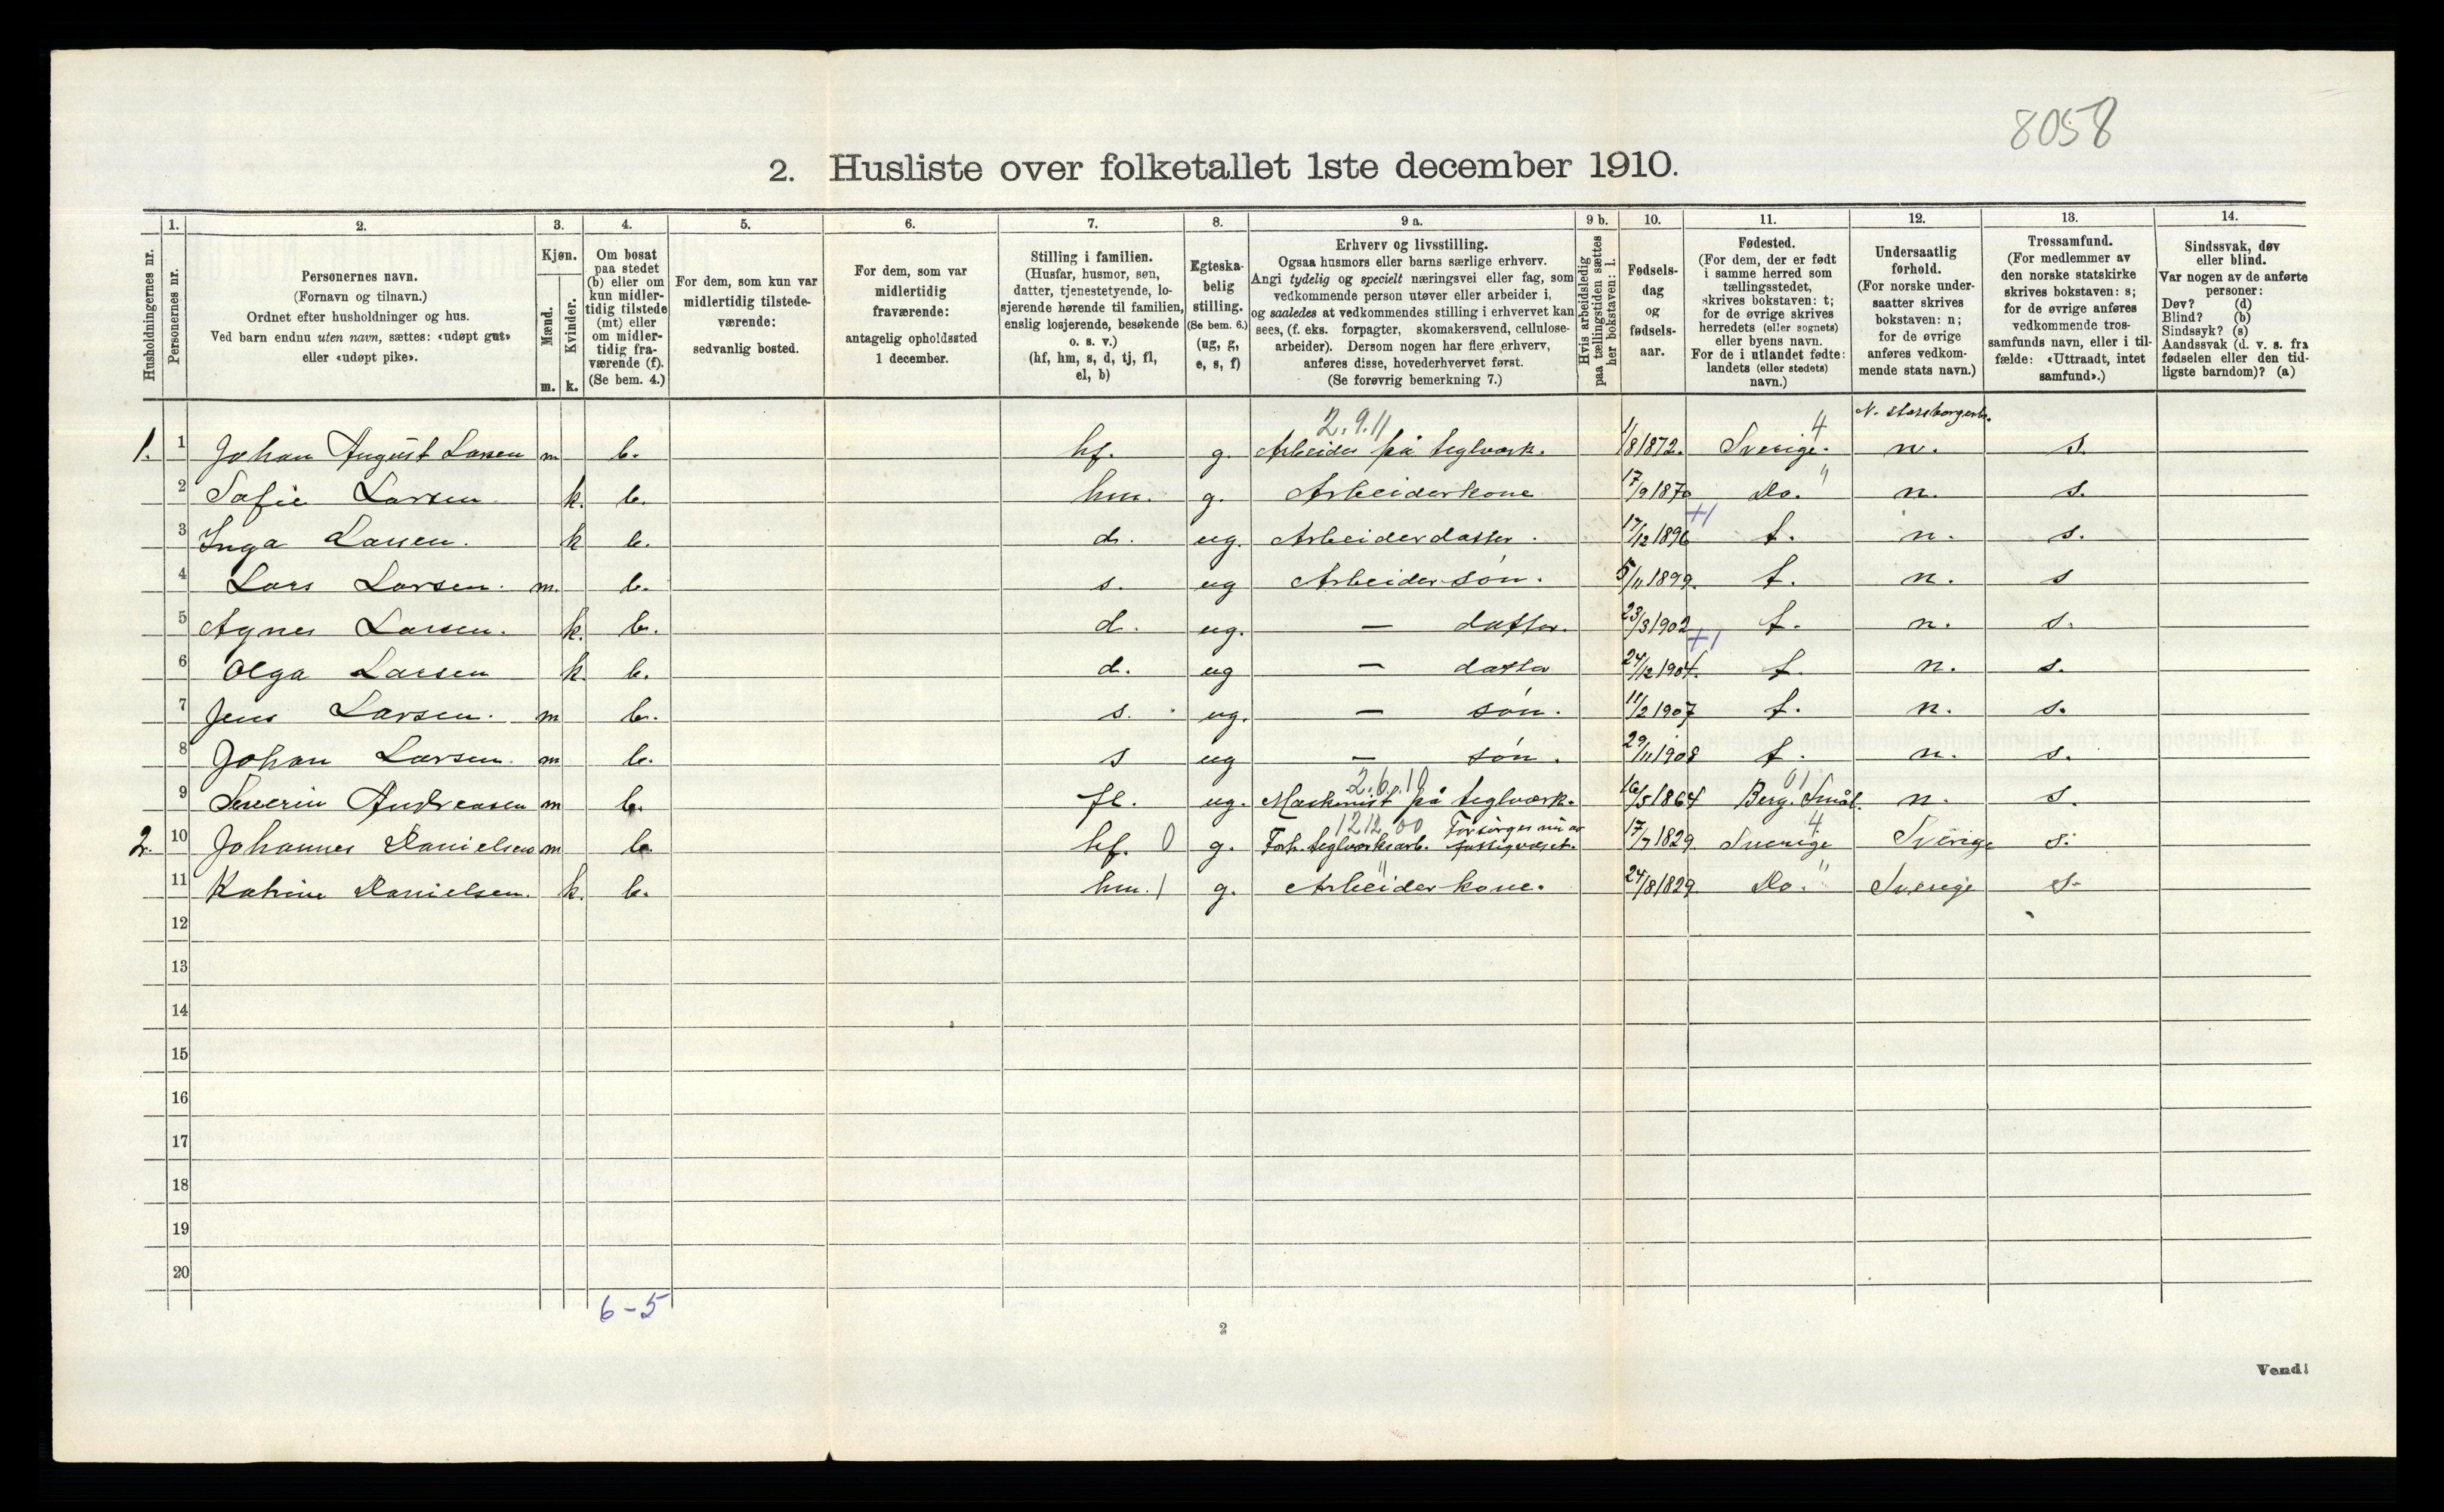 8058
2. Husliste over folketallet 1ste december 1910.
Husholdningernes nr.
1. Personernes nr.
2. Personernes navn. (Fornavn og tilnavn.) Ordnet efter husholdninger og hus. Ved barn endnu uten navn, sættes: «udøpt gut» eller «udøpt pike».
3. Kjøn. Mænd. m. Kvinder. k.
4. Om bosat paa stedet (b) eller om kun midlertidig tilstede (mt) eller om midlertidig fraværende (f). (Se bem. 4.)
5. For dem, som kun var midlertidig tilstedeværende: sedvanlig bosted.
6. For dem, som var midlertidig fraværende: antagelig opholdssted 1 december.
7. Stilling i familien. (Husfar, husmor, søn, datter, tjenestetyende, losjerende hørende til familien, enslig losjerende, besøkende o. s. v.) (hf, hm, s, d, tj, fl, el, b)
8. Egteskabelig stilling. (Se bem. 6.) (ug, g, e, s, f)
9 a. Erhverv og livsstilling. Ogsaa husmors eller barns særlige erhverv. Angi tydelig og specielt næringsvei eller fag, som vedkommende person utøver eller arbeider i, og saaledes at vedkommendes stilling i erhvervet kan sees, (f. eks. forpagter, skomakersvend, cellulosearbeider). Dersom nogen har flere erhverv, anføres disse, hovederhvervet først. (Se forøvrig bemerkning 7.)
9 b. Hvis arbeidsledig paa tællingstiden sættes her bokstaven: l.
10. Fødselsdag og fødselsaar.
11. Fødested. (For dem, der er født i samme herred som tællingsstedet, skrives bokstaven: t; for de øvrige skrives herredets (eller sognets) eller byens navn. For de i utlandet fødte: landets (eller stedets) navn.)
12. Undersaatlig forhold. (For norske undersaatter skrives bokstaven: n; for de øvrige anføres vedkommende stats navn.)
13. Trossamfund. (For medlemmer av den norske statskirke skrives bokstaven: s; for de øvrige anføres vedkommende trossamfunds navn, eller i tilfælde: «Uttraadt, intet samfund».)
14. Sindssvak, døv eller blind. Var nogen av de anførte personer: Døv? (d) Blind? (b) Sindssyk? (s) Aandssvak (d. v. s. fra fødselen eller den tidligste barndom)? (a)
2.9.11 4 N. statsborgerbr.
1. 1 Johan August Larsen m b. hf. g. Arbeider på teglværk. 1/8 1872. Sverige. n. s.
2 Sofie Larsen k. b. hm. g. Arbeiderkone 17/9 1870 Do. " n. s.
+1
3 Inga Larsen. k b. d. ug. Arbeiderdatter. 17/12 1896 t. n. s.
4 Lars Larsen. m. b. s. ug Arbeidersøn. 5/11 1899. t. n. s
5 Agnes Larsen. k. b. d. ug. — datter. 23/3 1902 t. n. s.
+1
6 Olga Larsen k. b. d. ug — datter 24/12 1904. t. n. s.
7 Jens Larsen. m b. s. ug. — søn. 11/2 1907 t. n. s.
8 Johan Larsen. m b. s ug — søn. 29/11 1908 t. n. s.
2.6.10 01
9 Severin Andreasen m b. fl. ug. Maskinist på teglværk. 16/5 1864 Berg. Smål. n. s.
1212 00 4
2. 10 Johannes Danielsen m b. hf. 0 g. Forh. teglværksarb. Forsørges nu av fattigvæset. 17/7 1829. Sverige Sverige s.
11 Katrine Danielsen. k. b. hm. 1 g. Arbeiderkone. " 24/8 1829. Do. " Sverige s.
12
13
14
15
16
17
18
19
20
6-5
2
Vend!